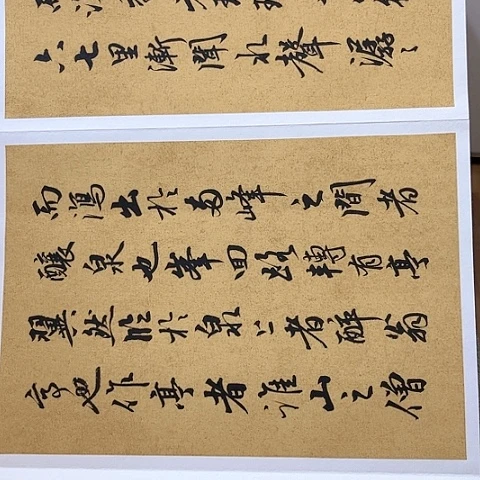 六七里漸聞水聲潺〻
而瀉出於兩峰之間者
釀泉也峯回路轉有亭
翼然臨於泉上者醉翁
亭也作亭者誰山之僧